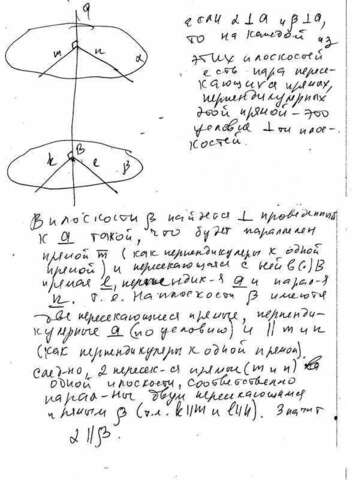 a
если α⊥a и β⊥a,
то на каждой из
этих плоскостей
есть пара пересе-
кающихся прямых,
перпендикулярных
этой прямой - это
условие ⊥ти плос-
костей.
m n α
B
k e β
В плоскости β найдется ⊥ проведенный
к a такой, что будет параллелен
прямой m (как перпендикуляры к одной
прямой) и пересекающаяся с ней в (•) B
прямая l, перпендик-я a и парал-я
n. т.о. На плоскости β имеются
две пересекающиеся прямые, перпенди-
кулярные a (по условию) и || m и n
(как перпендикуляры к одной прямой).
След-но, 2 пересек-ся прямые (m и n)
одной плоскости, соответственно
парал-ны двум пересекающимся
прямым β (т.к. k||m и l||n). Значит
α||β.